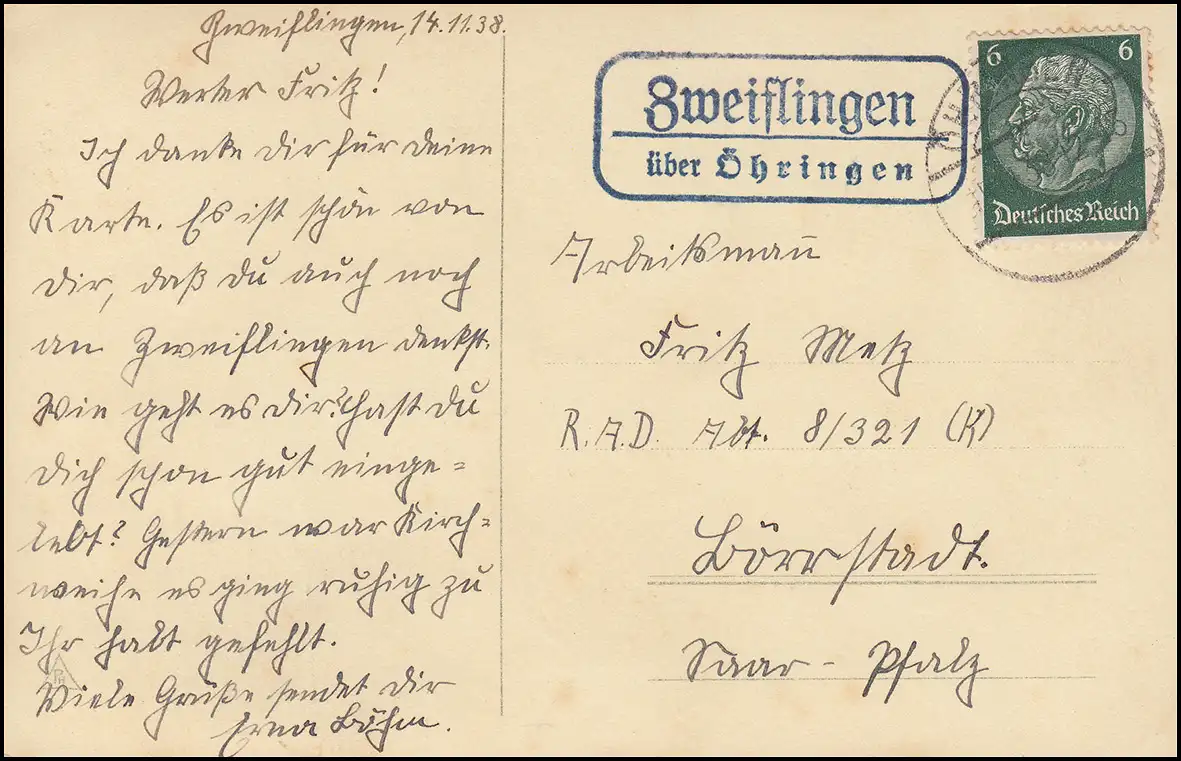 Zweiflingen, 14.11.38.
Werter Fritz!
Ich danke Dir für Deine
Karte. Es ist schön von
Dir, daß Du auch noch
an Zweiflingen denkst.
Wie geht es Dir? Hast Du
Dich schon gut einge=
lebt? Gestern war Kirch=
weihe es ging ruhig zu
Ihr habt gefehlt.
Viele Grüße sendet Dir
Erna Böhm.
Zweiflingen
über Öhringen
6 6
Deutsches Reich
Arbeitsmann
Fritz Metz
R.A.D. Abt. 8/321 (K)
Börrstadt.
Saar-Pfalz